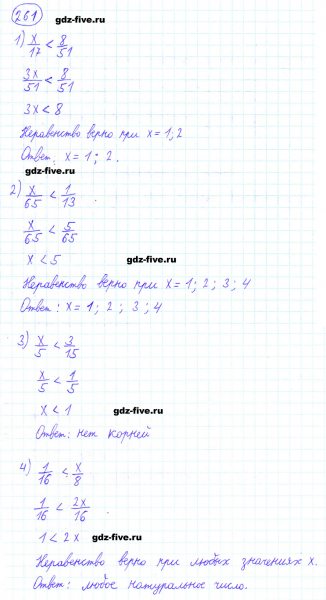 261 gdz-five.ru
1) x/17 < 8/51 gdz-five.ru
3x/51 < 8/51
3x < 8
Неравенство верно при x = 1; 2
Ответ: x = 1 ; 2 .
gdz-five.ru
2) x/65 < 1/13
x/65 < 5/65
x < 5 gdz-five.ru
Неравенство верно при x = 1 ; 2 ; 3 ; 4
Ответ : x = 1 ; 2 ; 3 ; 4
3) x/5 < 3/15
x/5 < 1/5
x < 1 gdz-five.ru
Ответ: нет корней
4) 1/16 < x/8
1/16 < 2x/16
1 < 2x gdz-five.ru
Неравенство верно при любых значениях x.
Ответ: любое натуральное число.